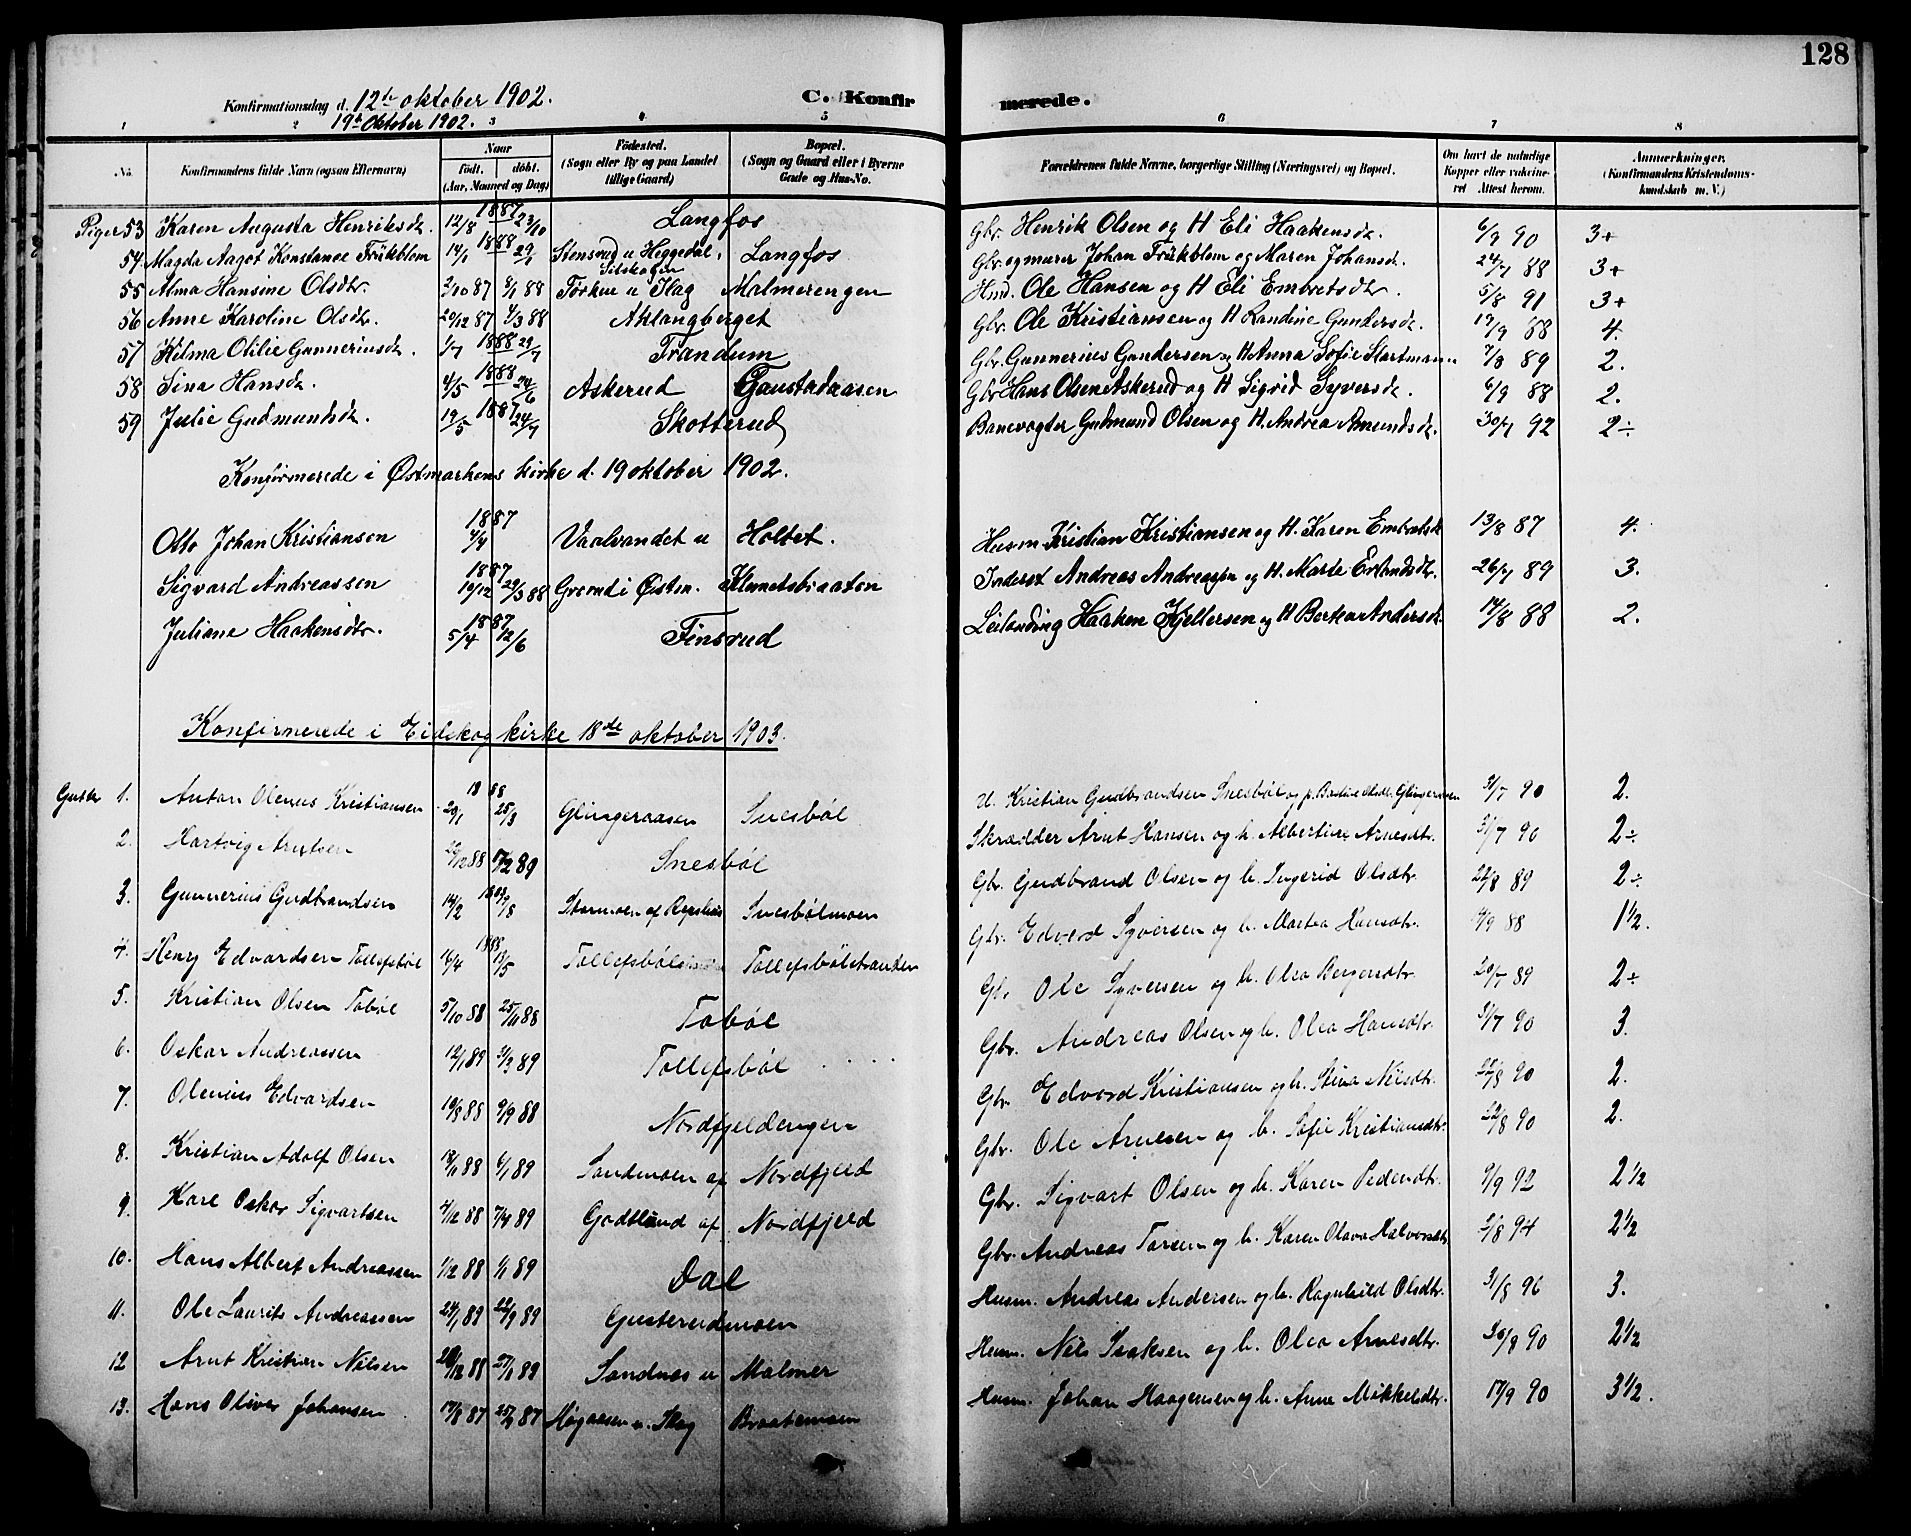 128
Konfirmationsdag d. 12te oktober 1902. C. Konfirmerede.
19de Oktober 1902.
1 2 3 4 5 6 7 8
No. Konfirmandens fulde Navn (ogsaa Efternavn) Naar født. døbt. (Aar, Maaned og Dag) Fødested. (Sogn eller By og paa Landet tillige Gaard) Bopæl. (Sogn og Gaard eller i Byerne Gade og Hus-No.) Forældrenes fulde Navne, borgerlige Stilling (Næringsvei) og Bopæl. Om havt de naturlige Kopper eller vakcineret. Attest herom. Anmærkninger. (Konfirmandens Kristendomskundskab m. V.)
Piger 53 Karen Augusta Henriksdt. 1887 12/8 23/10 Langfos Gbr. Henrik Olsen og H Eli Haakensdt. 6/9 90 3+
54 Magda Aagot Konstanse Frükblom 1888 14/1 29/1 Stensrud u Heggedal, Langfos Gbr. og murer Johan Frükblom og Maren Johansdt. 24/7 88 3+
55 Alma Hansine Olsdtr. 3/10 87 6/1 88 Törken u Skag Malmerengen Hmd. Ole Hansen og H Eli Embretsdtr. 5/8 91 3+
56 Anne Karoline Olsdtr. 20/12 87 4/3 88 Aklangberget Gbr. Ole Kristiansen og H Randine Gundersdt. 19/9 88 4.
57 Hilma Otilie Gunneriusdt. 1888 1/7 29/7 Trandum Gbr. Gunnerius Gundersen og H Anna Sofie Startmann 7/8 89 2.
58 Sina Hansdt. 1888 4/5 24/6 Askerud Gaustadaasen Gbr Hans Olsen Askerud og H Sigrid Syversdt. 6/9 88 2.
59 Julie Gudmundsdt. 1887 19/5 24/7 Skotterud Banevogter Gudmund Olsen og H. Andrea Amundsdt. 30/7 92 2÷
Konfirmerede i Østmarkens kirke d. 19 oktober 1902.
Otto Johan Kristiansen 1887 4/4 Vaalvandet u Holtet. Husm Kristian Kristiansen og H. Karen Embretsdt 13/8 87 4.
Sigvard Andreassen 1887 10/12 29/3 88 Grønd i Østm. Klemetsbraaten Inderst Andreas Andreassen og H. Marte Erlandsdtr. 26/7 89 3.
Juliane Haakensdtr. 1887 5/4 12/6 Finsrud Leilending Haaken Kjellersen og H Berthe Andersdt. 14/8 88 2.
Konfirmerede i Eidskog kirke 18de oktober 1903.
Gutter 1. Anton Olenus Kristiansen 1888 29/1 25/3 Glingeraasen Snesböl U. Kristian Gudbrandsen Snesböl og p. Glingeraasen 31/7 90 2.
2. Hartvig Arntsen 29/12 88 17/2 89 Snesböl Skrædder Arnt Hansen og h. Albertine Arnesdtr. 31/7 90 2÷
3. Gunnerius Gudbrandsen 14/2 9/8 Stormoen af Snesbölmoen Gbr. Gudbrand Olsen og h. Ingerid Olsdtr. 22/8 89 2÷
4. Henry Edvardsen Tollefsböl 1888 6/4 13/5 Tollefsböl Tollefsbölstranden Gbr. Edvard Syversen og h. Martea Hansdtr. 14/9 88 1½.
5. Kristian Olsen Toböl 5/10 88 25/11 88 Toböl Gbr. Ole Syversen og h. Olea Bergersdtr. 20/7 89 2÷
6. Oskar Andreassen 12/1 89 31/3 89 Tollefsböl Gbr. Andreas Olsen og h. Olea Hansdtr. 31/7 90 3.
7. Olenius Edvardsen 19/8 88 9/9 88 Nordfjeldengen Gbr. Edvard Kristiansen og h. Stina Nilsdtr. 22/8 90 2.
8. Kristian Adolf Olsen 18/11 88 6/1 89 Sandmoen af Nordfjeld Gbr. Ole Arnesen og h. Sofie Kristiansdtr. 22/8 90 2.
9. Karl Oskar Sigvartsen 4/12 88 7/4 89 Godtlund af Nordfjeld Gbr. Sigvart Olsen og h. Karen Pedersdtr. 9/9 92 2½
10. Hans Albert Andreassen 1/12 88 1/1 89 Dal Gbr. Andreas Toresen og h. Karen Olava Halvorsdtr. 2/8 94 2½
11. Ole Laurits Andreassen 24/1 89 22/9 89 Gusterudmoen Husm. Andreas Andersen og h. Ragnhild Olsdtr. 31/8 96 3.
12 Arnt Kristian Nilsen 20/12 88 27/1 89 Sandnes u Malmer Husm. Nils Isaksen og h. Olea Arnesdtr. 30/8 90 2½
13. Hans Oliver Johansen 17/8 87 25/9 87 Høgaasen u. Skog Braatemoen Husm. Johan Haagensen og h. Anne Mikkelsdtr. 17/9 90 3½.